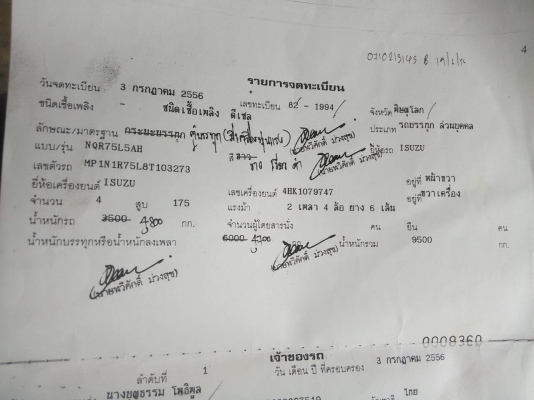 4
รายการจดทะเบียน
วันจดทะเบียน 3 กรกฎาคม 2556 เลขทะเบียน 82-1994 จังหวัด พิษณุโลก
ชนิดเชื้อเพลิง - ชนิดเชื้อเพลิง ดีเซล ประเภท รถยรรทุก ส่วนบุคคล
ลักษณะ/มาตรฐาน กระบะบรรทุก ตู้บรรทุก ยี่ห้อรถ ISUZU
แบบ/รุ่น NQR75L5AH สี ขาว
เลขตัวรถ MP1N1R75L8T103273 อยู่ที่ หน้าขวา
ยี่ห้อเครื่องยนต์ ISUZU เลขเครื่องยนต์ 4HK1079747 อยู่ที่ ขวาเครื่อง
จำนวน 4 สูบ 175 แรงม้า 2 เพลา 4 ล้อ ยาง 6 เส้น
น้ำหนักรถ 3500 4,800 กก. จำนวนผู้โดยสารนั่ง คน ยืน คน
น้ำหนักบรรทุกหรือน้ำหนักลงเพลา 6000 4,700 กก. น้ำหนักรวม 9500 กก.
0008360
เจ้าของรถ
ลำดับที่ 1 วัน เดือน ปี ที่ครอบครอง 3 กรกฎาคม 2556
ไทย